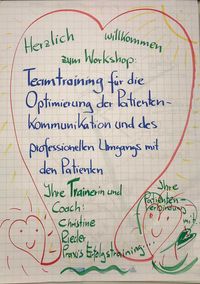 Herzlich willkommen
zum Workshop:
Teamtraining für die
Optimierung der Patienten-
Kommunikation und des
professionellen Umgangs mit
den Patienten
Ihre Trainerin und
Coach:
Christine
Rieder
Praxis Erfolgstraining...
Ihre
Patienten-
verbindung
mit